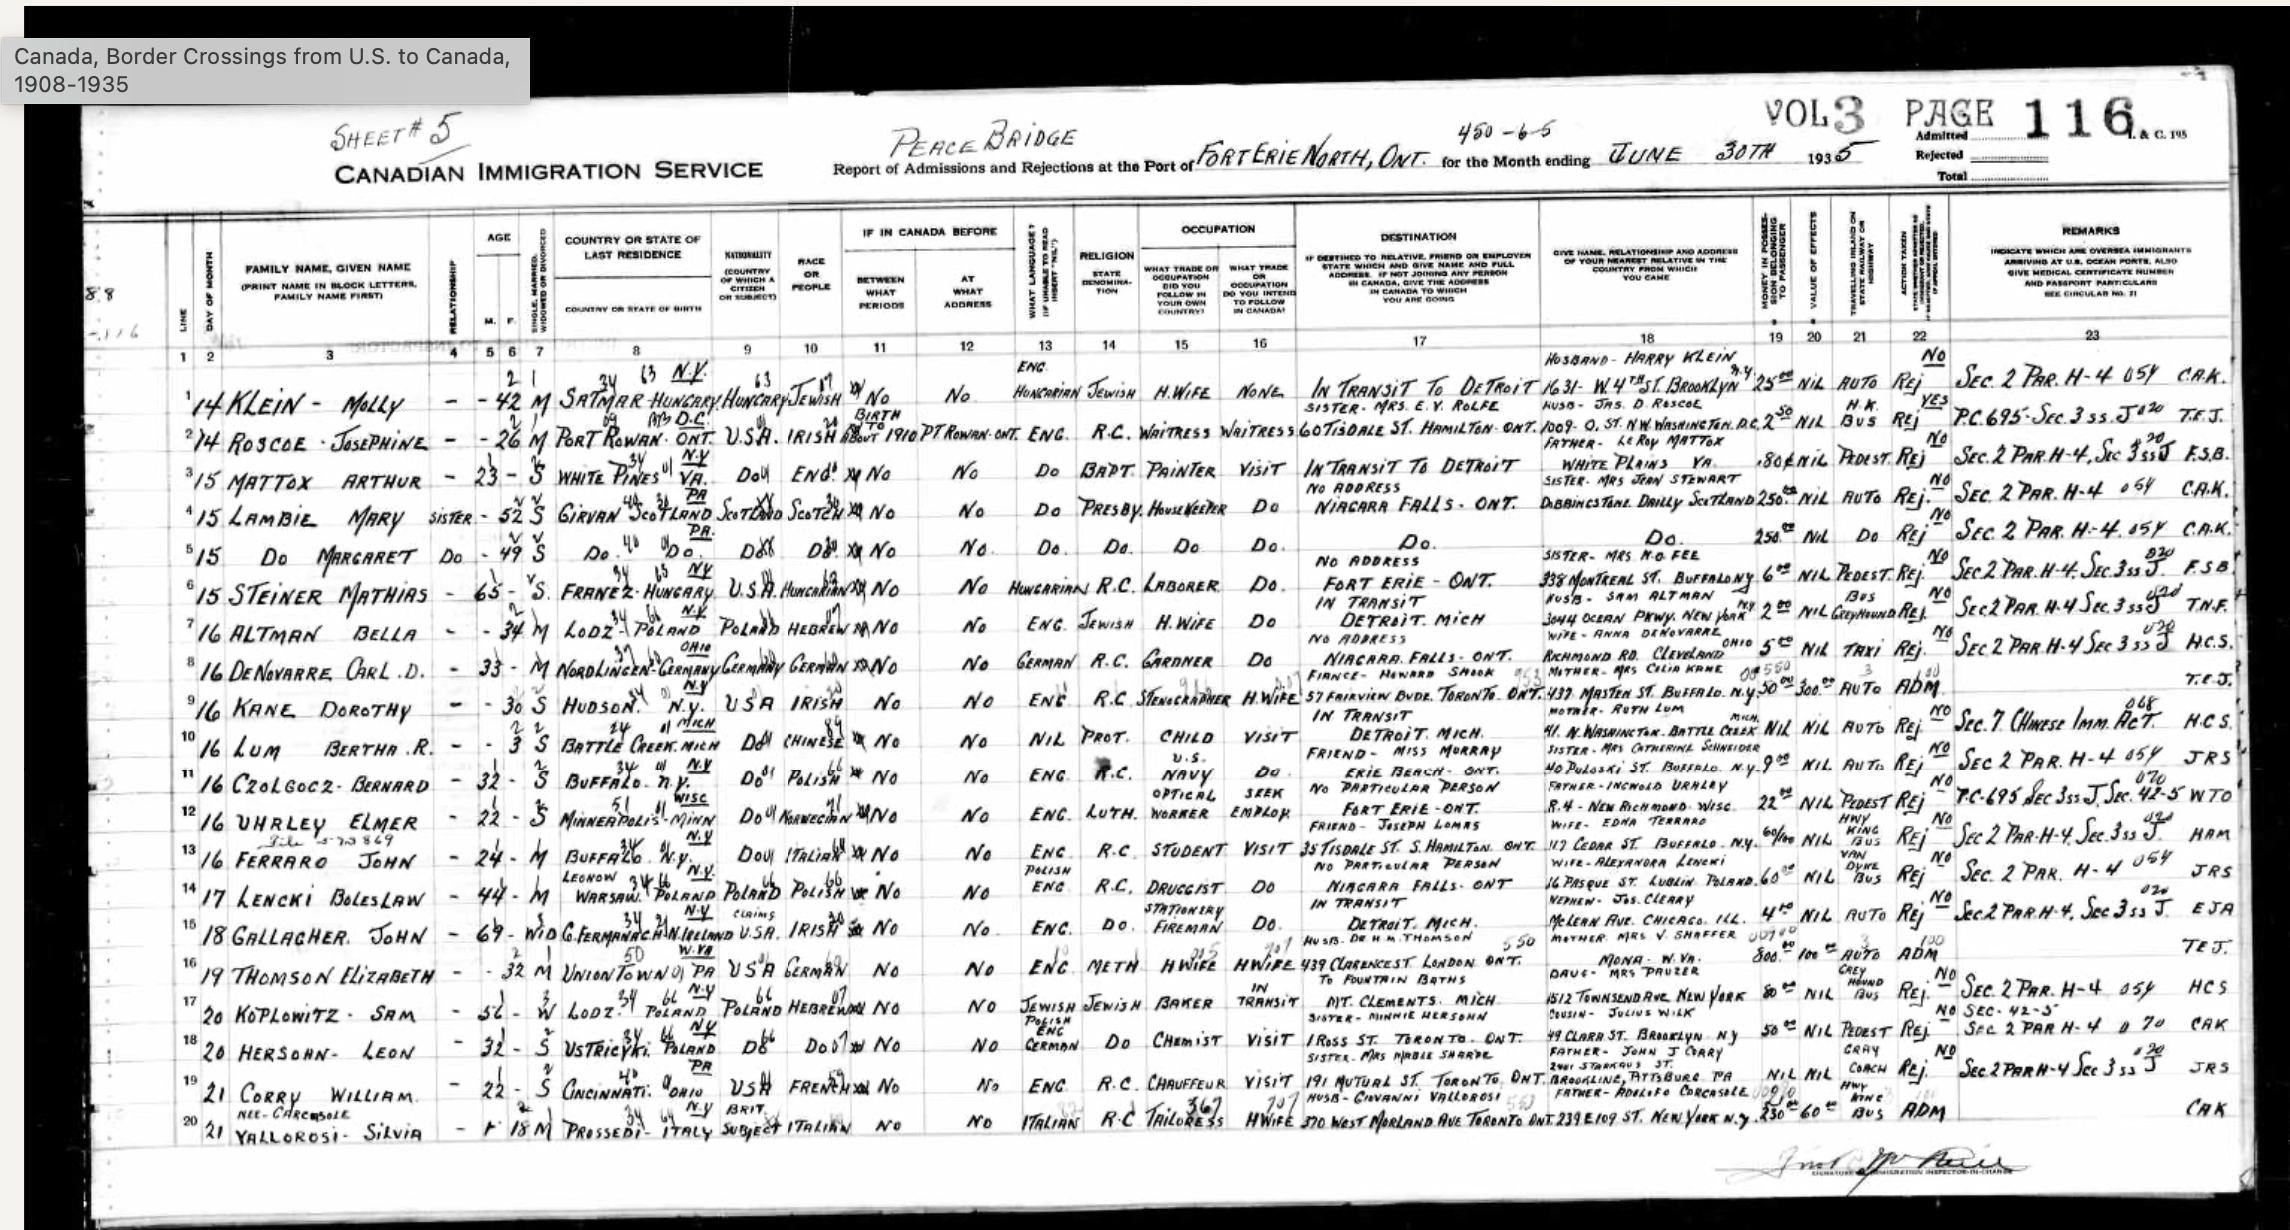 Canada, Border Crossings from U.S. to Canada,
1908-1935
SHEET# 5
PEACE BRIDGE
450-6-5
VOL 3 PAGE 116
Admitted
I. & C. 195
CANADIAN IMMIGRATION SERVICE
Report of Admissions and Rejections at the Port of FORT ERIE NORTH, ONT. for the Month ending JUNE 30TH 1935
Rejected
Total
LINE
DAY OF MONTH
FAMILY NAME, GIVEN NAME
(PRINT NAME IN BLOCK LETTERS,
FAMILY NAME FIRST)
RELATIONSHIP
AGE
M. F.
SINGLE, MARRIED, WIDOWED OR DIVORCED
COUNTRY OR STATE OF
LAST RESIDENCE
COUNTRY OR STATE OF BIRTH
NATIONALITY
(COUNTRY
OF WHICH A
CITIZEN
OR SUBJECT)
RACE
OR
PEOPLE
IF IN CANADA BEFORE
BETWEEN
WHAT
PERIODS
AT
WHAT
ADDRESS
WHAT LANGUAGE?
(IF UNABLE TO READ
INSERT "NIL")
RELIGION
STATE
DENOMINA-
TION
OCCUPATION
WHAT TRADE OR
OCCUPATION
DID YOU
FOLLOW IN
YOUR OWN
COUNTRY?
WHAT TRADE
OR
OCCUPATION
DO YOU INTEND
TO FOLLOW
IN CANADA?
DESTINATION
IF DESTINED TO RELATIVE, FRIEND OR EMPLOYER
STATE WHICH AND GIVE NAME AND FULL
ADDRESS. IF NOT JOINING ANY PERSON
IN CANADA, GIVE THE ADDRESS
IN CANADA TO WHICH
YOU ARE GOING
GIVE NAME, RELATIONSHIP AND ADDRESS
OF YOUR NEAREST RELATIVE IN THE
COUNTRY FROM WHICH
YOU CAME
MONEY IN POSSES-
SION BELONGING
TO PASSENGER
VALUE OF EFFECTS
TRAVELLED INLAND ON
STATE RAILWAY OR
HIGHWAY
ACTION TAKEN
REMARKS
INDICATE WHICH ARE OVERSEA IMMIGRANTS
ARRIVING AT U.S. OCEAN PORTS, ALSO
GIVE MEDICAL CERTIFICATE NUMBER
AND PASSPORT PARTICULARS
SEE CIRCULAR NO. 21
1 2 3 4 5 6 7 8 9 10 11 12 13 14 15 16 17 18 19 20 21 22 23
N.Y. ENG HUSBAND - HARRY KLEIN NO
1 14 KLEIN - MOLLY - - 42 M SATMAR-HUNGARY HUNGARY JEWISH NO NO HUNGARIAN JEWISH H.WIFE NONE IN TRANSIT TO DETROIT 1631- W. 4TH ST. BROOKLYN N.Y. 25.00 NIL AUTO REJ SEC. 2 PAR. H-4 054 C.A.K.
D.C. BIRTH TO SISTER- MRS. E.V. ROLFE HUSB- JAS. D. ROSCOE H.K. YES
2 14 ROSCOE - JOSEPHINE - - 26 M PORT ROWAN. ONT. U.S.A. IRISH ABOUT 1910 PT ROWAN-ONT. ENG. R.C. WAITRESS WAITRESS 60 TISDALE ST. HAMILTON-ONT. 1009- O. ST. N.W. WASHINGTON. D.C. 2.50 NIL BUS REJ P.C. 695-SEC 3 SS. J 020 T.E.J.
N.Y FATHER- LEROY MATTOX NO
3 15 MATTOX ARTHUR - 23 - S WHITE PINES VA. DO ENG. NO NO DO BAPT. PAINTER VISIT IN TRANSIT TO DETROIT WHITE PLAINS VA. .80¢ NIL PEDEST REJ SEC. 2 PAR. H-4, SEC 3 SS J 020 F.S.B.
PA NO ADDRESS SISTER- MRS JEAN STEWART NO
4 15 LAMBIE MARY SISTER - 52 S GIRVAN SCOTLAND SCOTLAND SCOTCH NO NO DO PRESBY. HOUSEKEEPER DO NIAGARA FALLS- ONT. DAILLY SCOTLAND 250.00 NIL AUTO REJ. SEC. 2 PAR. H-4 054 C.A.K.
PA. NO
5 15 DO MARGARET DO - 49 S DO. DO. DO DO. NO NO. DO. DO. DO DO. DO. DO. 250.00 NIL DO REJ SEC. 2 PAR. H-4. 054 C.A.K.
NY NO ADDRESS SISTER- MRS N.O. FEE NO
6 15 STEINER MATHIAS - 65 - S. FRANEZ-HUNGARY U.S.A. HUNGARIAN NO NO HUNGARIAN R.C. LABORER DO. FORT ERIE - ONT. 338 MONTREAL ST. BUFFALO NY 6.00 NIL PEDEST. REJ. SEC 2 PAR. H-4. SEC. 3 SS J. 020 F.S.B
N.Y. IN TRANSIT HUSB- SAM ALTMAN BUS NO
7 16 ALTMAN BELLA - - 34 M LODZ-POLAND POLAND HEBREW NO NO ENG. JEWISH H.WIFE DO DETROIT. MICH 3044 OCEAN PKWY. NEW YORK N.Y. 2.00 NIL GREYHOUND REJ. SEC 2 PAR. H-4 SEC. 3 SS J 020 T.N.F.
OHIO NO ADDRESS WIFE- ANNA DENOVARRE NO
8 16 DENOVARRE CARL. D. - 33 - M NORDLINGEN-GERMANY GERMANY GERMAN NO NO GERMAN R.C. GARDNER DO NIAGARA. FALLS- ONT. RICHMOND RD. CLEVELAND OHIO 5.00 NIL TAXI REJ. SEC 2 PAR. H-4 SEC 3 SS J 020 H.C.S.
N.Y FIANCE- HOWARD SHOOK MOTHER- MRS CELIA KANE
9 16 KANE DOROTHY - - 30 S HUDSON. N.Y. U S A IRISH NO NO ENG R.C STENOGRAPHER H.WIFE 57 FAIRVIEW BVDE. TORONTO-ONT. 437 MASTEN ST. BUFFALO. N.Y. 50.00 300.00 AUTO ADM. T.E.J.
MICH IN TRANSIT MOTHER- RUTH LUM MICH. NO
10 16 LUM BERTHA. R. - - 3 S BATTLE CREEK. MICH DO CHINESE NO NO NIL PROT. CHILD VISIT DETROIT. MICH. 41. N. WASHINGTON- BATTLE CREEK NIL NIL AUTO REJ. SEC. 7. CHINESE IMM. ACT. 068 H.C.S.
N.Y U.S. FRIEND- MISS MURRAY SISTER- MRS CATHERINE SCHNEIDER NO
11 16 CZOLGOCZ- BERNARD - 32 - S BUFFALO. N.Y. DO POLISH NO NO ENG. R.C. NAVY DO. ERIE BEACH- ONT. 40 PULASKI ST. BUFFALO. N.Y. 9.00 NIL AUTO REJ SEC 2 PAR. H-4 054 JRS
WISC OPTICAL SEEK NO PARTICULAR PERSON FATHER- UHRLEY NO
12 16 UHRLEY ELMER - 22 - S MINNEAPOLIS-MINN DO NORWEGIAN NO NO ENG. LUTH. WORKER EMPLOY. FORT ERIE-ONT. R.4- NEW RICHMOND. WISC. 22.00 NIL PEDEST REJ P.C-695 SEC 3 SS J. SEC. 42-5 070 WTO
N.Y FRIEND- JOSEPH LOMAS WIFE- EDNA FERRARO HWY KING NO
13 16 FERRARO JOHN - 24 - M BUFFALO N.Y. DO ITALIAN NO NO ENG R.C. STUDENT VISIT 35 TISDALE ST. S. HAMILTON. ONT. 117 CEDAR ST. BUFFALO. N.Y. 60/100 NIL BUS REJ SEC 2 PAR-H-4. SEC. 3 SS J. 020 HAM
LEONOW N.Y. POLISH NO PARTICULAR PERSON WIFE-ALEXANDRA LENCKI VAN DYKE NO
14 17 LENCKI BOLESLAW - 44 - M WARSAW. POLAND POLAND POLISH NO NO ENG R.C. DRUGGIST DO NIAGARA FALLS- ONT 16 PASQUE ST. LUBLIN. POLAND. 60.00 NIL BUS REJ SEC. 2 PAR. H-4 054 JRS
N.Y CLAIMS STATIONERY IN TRANSIT NEPHEW- JOS. CLEARY NO
15 18 GALLAGHER. JOHN - 69 - WID C. FERMANAGH-N. IRELAND U.S.A. IRISH NO NO. ENG. DO. FIREMAN DO. DETROIT. MICH. MCLEAN AVE. CHICAGO. ILL. 4.00 NIL AUTO REJ SEC 2 PAR. H-4. SEC 3 SS J. 020 EJA
W.VA HUSB- DR. H.M. THOMSON 550 MOTHER MRS V. SHAFFER 100
16 19 THOMSON ELIZABETH - - 32 M UNIONTOWN PA U S A GERMAN NO NO ENG METH HWIFE HWIFE 439 CLARENCE ST. LONDON ONT. MONA- W. VA. 800.00 100.00 AUTO ADM TEJ.
N.Y IN TO FOUNTAIN BATHS DAUG- MRS PAUZER GREY HOUND NO
17 20 KOPLOWITZ- SAM - 52 - W LODZ- POLAND POLAND HEBREW NO NO JEWISH JEWISH BAKER TRANSIT MT. CLEMENTS. MICH. 1512 TOWNSEND AVE NEW YORK 80.00 NIL BUS REJ. SEC. 2 PAR. H-4 054 HCS
NY POLISH ENG SISTER- MINNIE HERSOHN COUSIN- JULIUS WILK NO SEC- 42-5
18 20 HERSOHN- LEON - 32 - S USTRICYKI. POLAND DO DO NO NO GERMAN DO CHEMIST VISIT 1 ROSS ST. TORONTO- ONT. 49 CLARA ST. BROOKLYN. NY 50.00 NIL PEDEST REJ SEC 2 PAR H-4 070 CAK
PA SISTER- MRS MABLE SHARPE FATHER- JOHN J CORRY GRAY NO
19 21 CORRY WILLIAM. - 22 - S CINCINNATI. OHIO USA FRENCH NO NO ENG R.C. CHAUFFEUR VISIT 191 MUTUAL ST. TORONTO. ONT. BROOKLINE, PITTSBURG PA NIL NIL COACH REJ. SEC 2 PAR H-4 SEC 3 SS J 020 JRS
NEE-CARCASOLE N.Y BRIT. HUSB- GIOVANNI VALLOROSI FATHER- ADOLFO CORCASOLE HWY KING
20 21 VALLOROSI- SILVIA - F 18 M PROSSEDI- ITALY SUBJECT ITALIAN NO NO ITALIAN R.C TAILORESS HWIFE 370 WEST MORLAND AVE TORONTO ONT. 239 E 109 ST. NEW YORK N.Y. 230.00 60.00 BUS ADM CAK
SIGNATURE IMMIGRATION INSPECTOR-IN-CHARGE